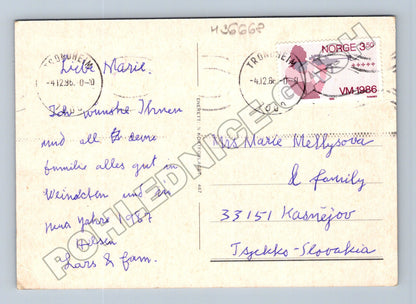 436668
TRONDHEIM
-4.12.86. 0-0
TRONDHEIM
-4.12.86. 0-0
NORGE 3.50
VM-1986
Liebe Marie.
Ich wünshe Ihnen
und all
familie alles gut in
Weinachten und in
neues Jahre 1987
Lars & fam.
Mrs Marie Mellysova
& family
33151 Kasnějov
Tsjekko-Slovakia
POHLEDNICE